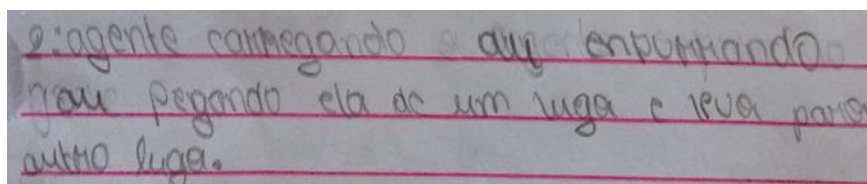 2:agente carregando auy enpurrando
ou pegando ela de um luga e leva para
outro luga.